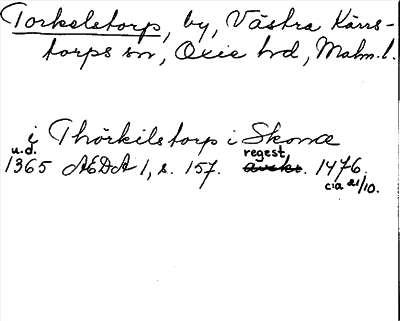 Torkelstorp, by, Västra Kärrs-
torps sn, Oxie hd, Malm. l.
i Thörkilstorp i Skone
u.d.
regest
1365 AEDA 1, s. 157. avskr. 1476.
cia 21/10.